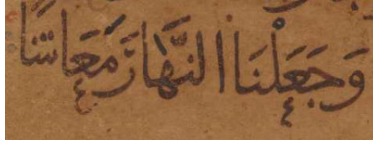 وَجَعَلْنَا النَّهَارَ مَعَاشًا